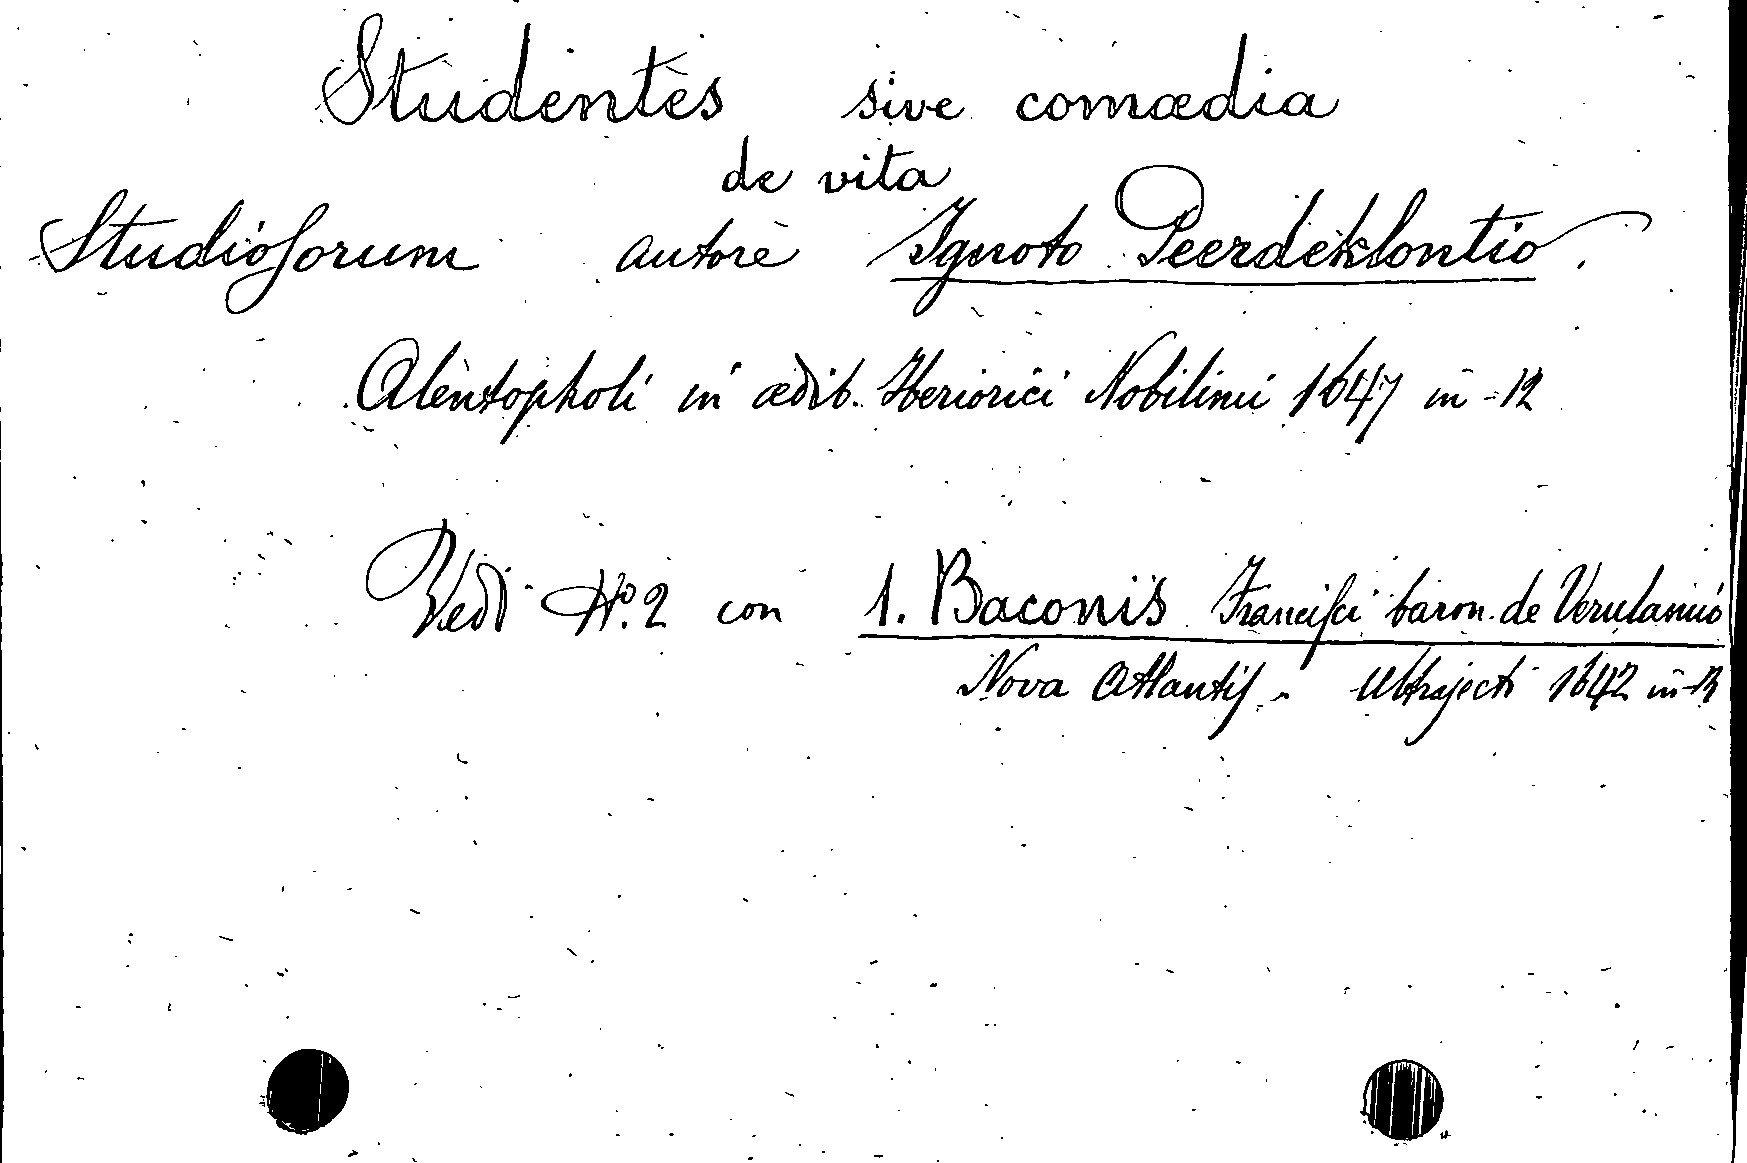 Studentes sive comœdia
de vita
Studiosorum autore Ignoto Peerdeklontio.
Alentopholi in ædib. Heriorici Nobilinii 1647 in-12
Vedi N.º 2 con 1. Baconis Francisci baron. de Verulamio
Nova Atlantis. Ultrajecti 1642 in-12